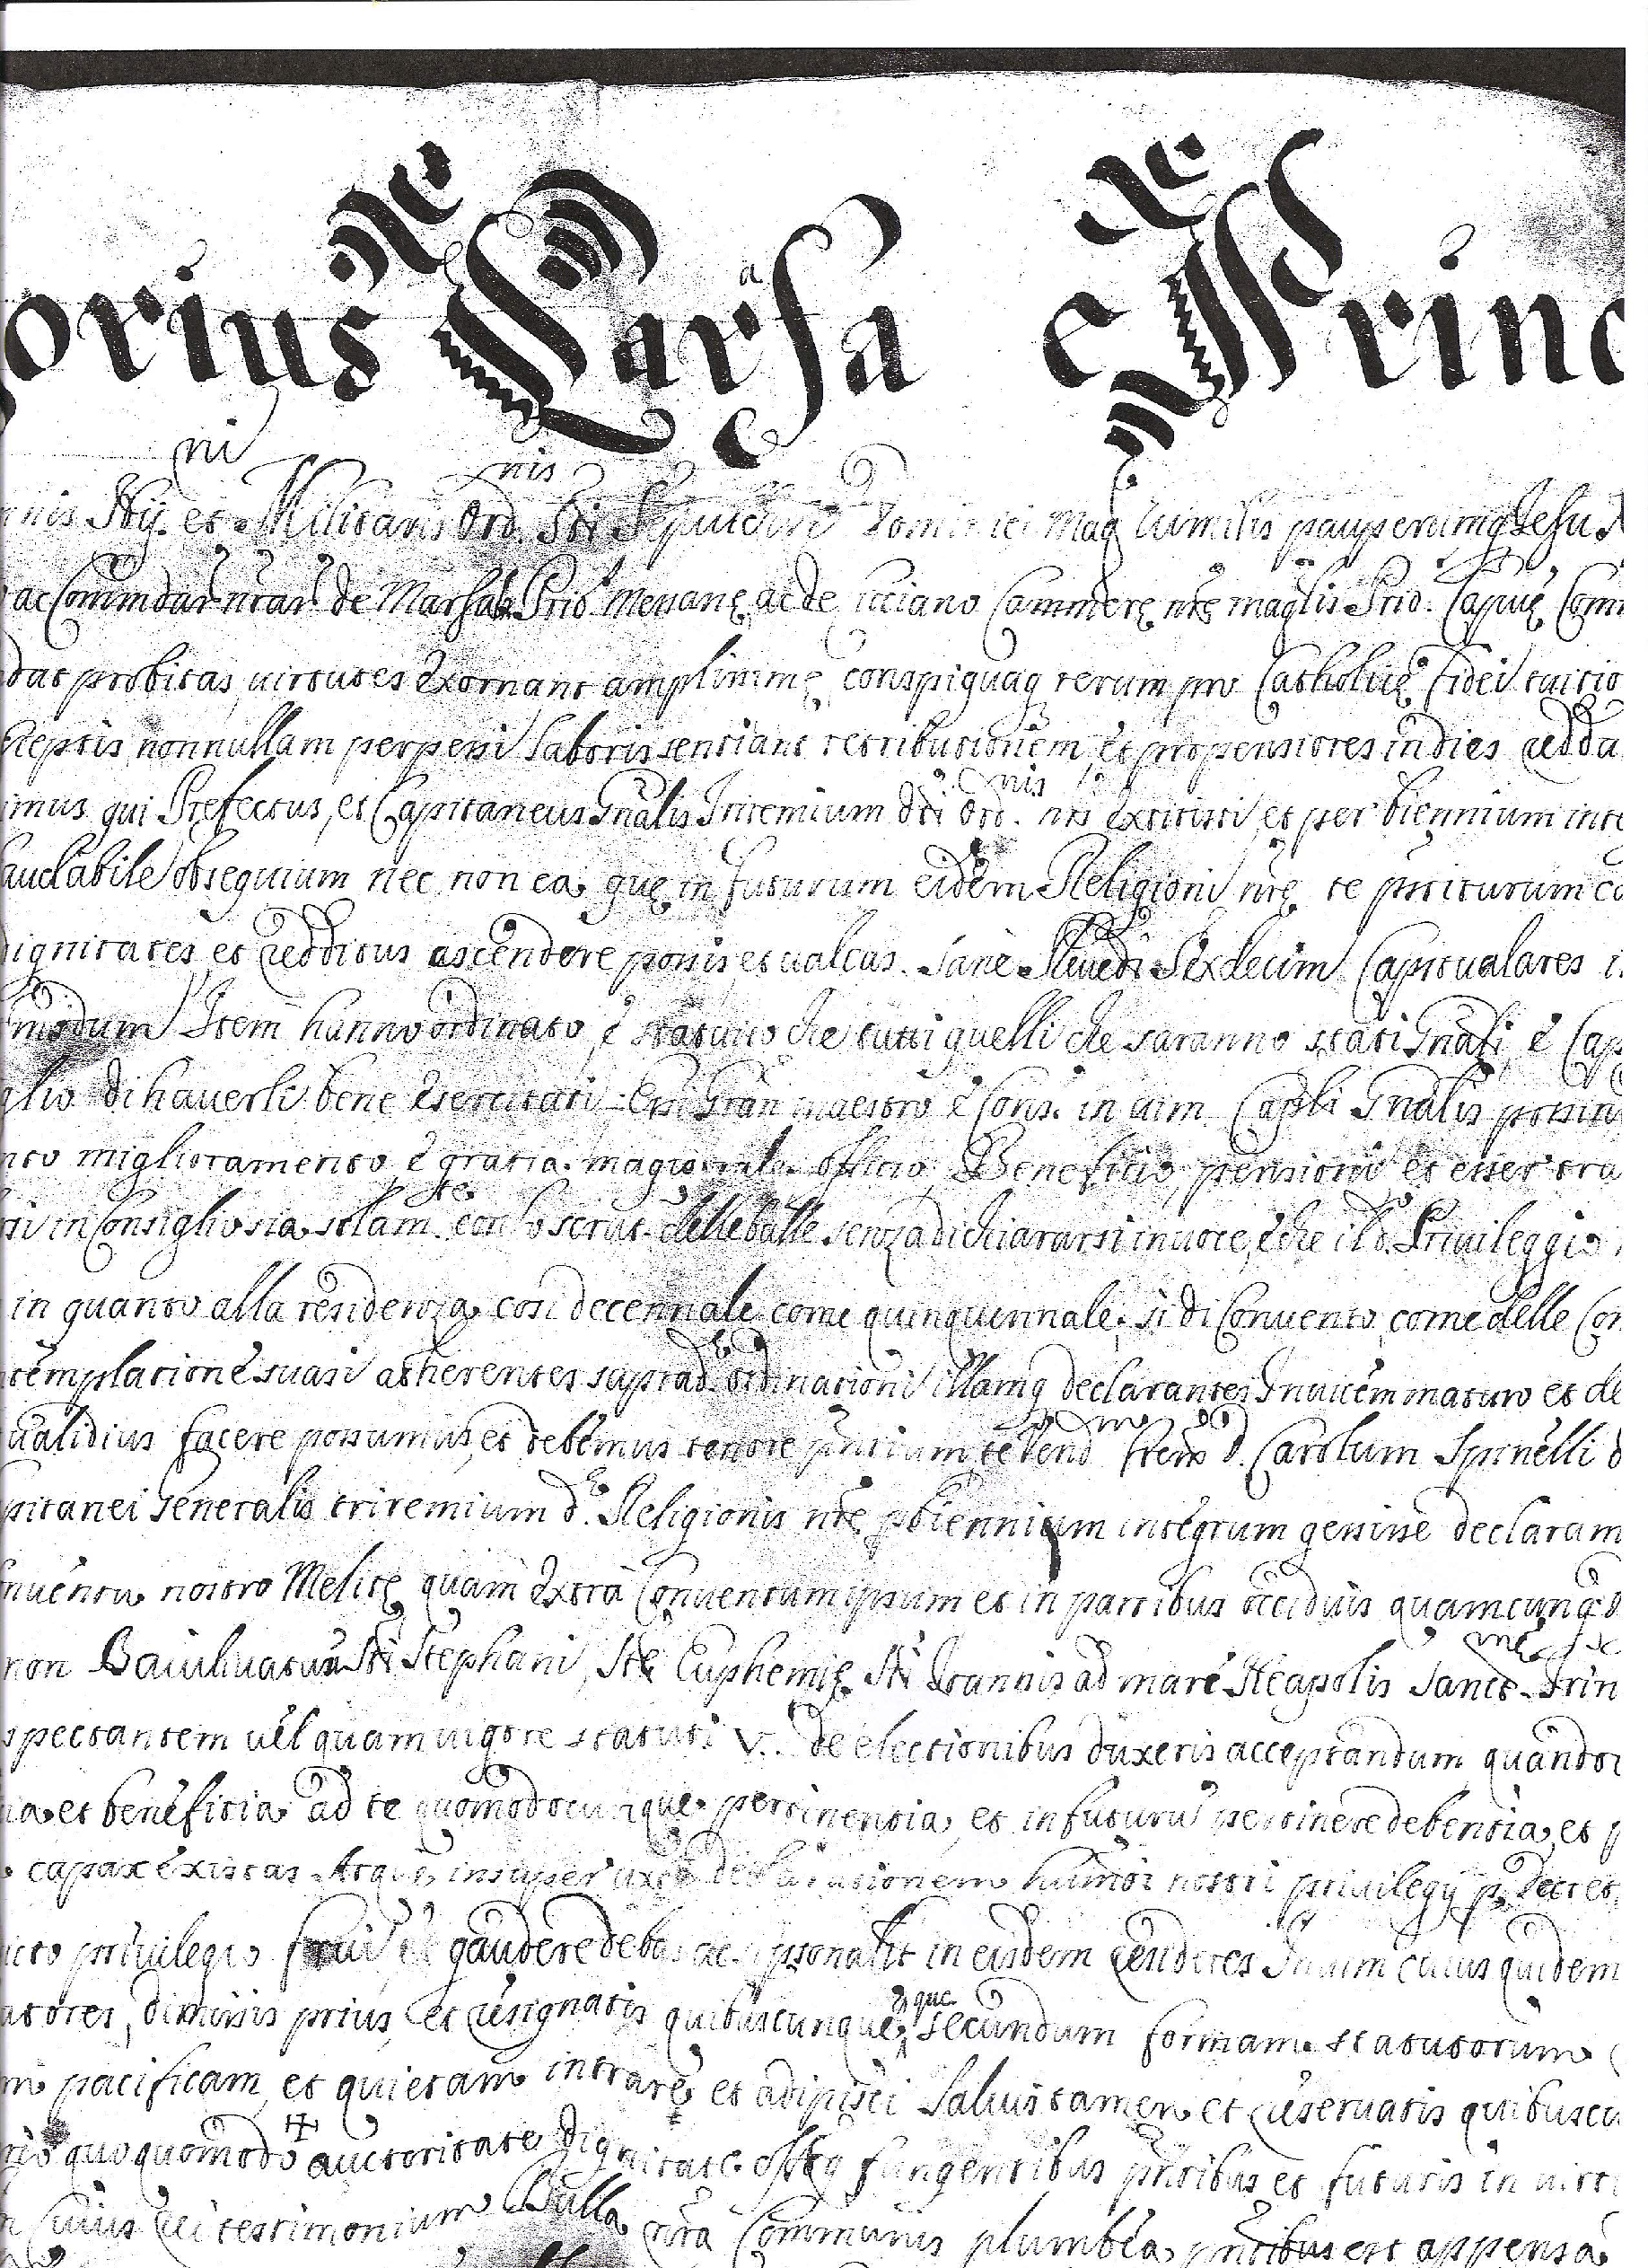 orius Carafa e Princ
nis Hij. et Militaris Ord.nis Sti Sepulchri Dominici Mag humilis pauperumq Jesu
ac Commdar nrar de Marsala Prio. Messanę, ac de Cammerę nrę maglis Prio. Capuę Com
dat probitas, uirtutes exornant amplissimę conspiquaq rerum pro Catholicę fidei tuitio
ceptis nonnullam perpessi laboris sentiant retributionem, et propensiores in dies redda
imus qui Prefectus, et Capitaneus Gnalis Triremium dti Ord.nis nri extitisti, et per biennium inte
laudabile obsequium nec non ea, quę in futurum eidem Religioni nrę te pstiturum co
dignitates et redditus ascendere possis et ualeas. Sane Reuedi Sexdecim Capitulares i
modum Item hanno ordinato, e statuito che tutti quelli che saranno stati Gnali e Cap
glio di hauerli bene esercitati, Gran maestro e Cons. in uim Capli Gnalis possin
nto miglioramento, e gratia magistrale, officio, Beneficio, pensioni et esser tra
si in Consiglio sia solam.te con lo scrut. delle balle senza dichiararsi in uoce, e che il d.o Priuileggio
in quanto alla residenza cosi decennale come quinquennale, si di Conuento, come delle Con
templatione suasi adherentes suprad. ordinationi, illamq declarantes Inuicem maturo et de
ualidius facere possumus, et debemus tenore pntium te Vend. frem d. Carolum Spinelli d
pitanei Generalis triremium d. Religionis nrę p biennium integrum gessisse declaram
nuentu nostro Melitę, quam extra Conuentum ipsum et in partibus occiduis quamcunq d
non Baiuliuatum Sti Stephani, Stę Euphemię, Sti Joannis ad mare Neapolis Sanct.mę Trin
spectantem uel quam uigore statuti V. de electionibus duxeris acceptandum quando
ia et beneficia ad te quomodocunque pertinentia, et in futurũ pertinere debentia, et p
capax existas. Atque insuper declarationem humõi nostri priuilegij p. Decret
icto priuilegio frui et gaudere debeas ac psonalit in eisdem residetes In uim cuius quidem
atores, dimissis prius, et resignatis quibuscunque, secundum formam statutorum
m pacificam, et quietam intrare, et adipisci Saluis tamen et reseruatis quibuscu
nis quoquomodo auctoritate Dignitate officioq fungentibus pntibus et futuris in uirt
n Cuius rei testimonium Bulla nra Communis plumbea pntibus est appensa